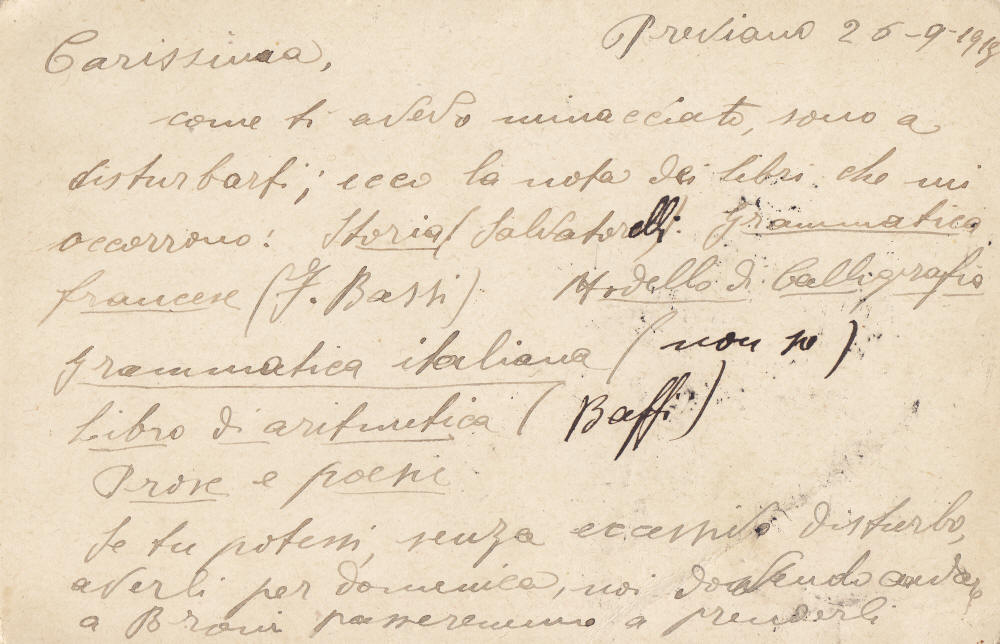 Previano 26-9-191
Carissima,
come ti avevo minacciato, sono a
disturbarti; ecco la nota dei libri che mi
occorrono: Storia (Salvatorelli) Grammatica
francese (F. Bassi) Modello di Calligrafia
Grammatica italiana (non so)
Libro di aritmetica (Baffi)
Prose e poesie
Se tu potessi, senza eccessivo disturbo,
averli per domenica, noi dovendo andare
a Broni passeremmo a prenderli